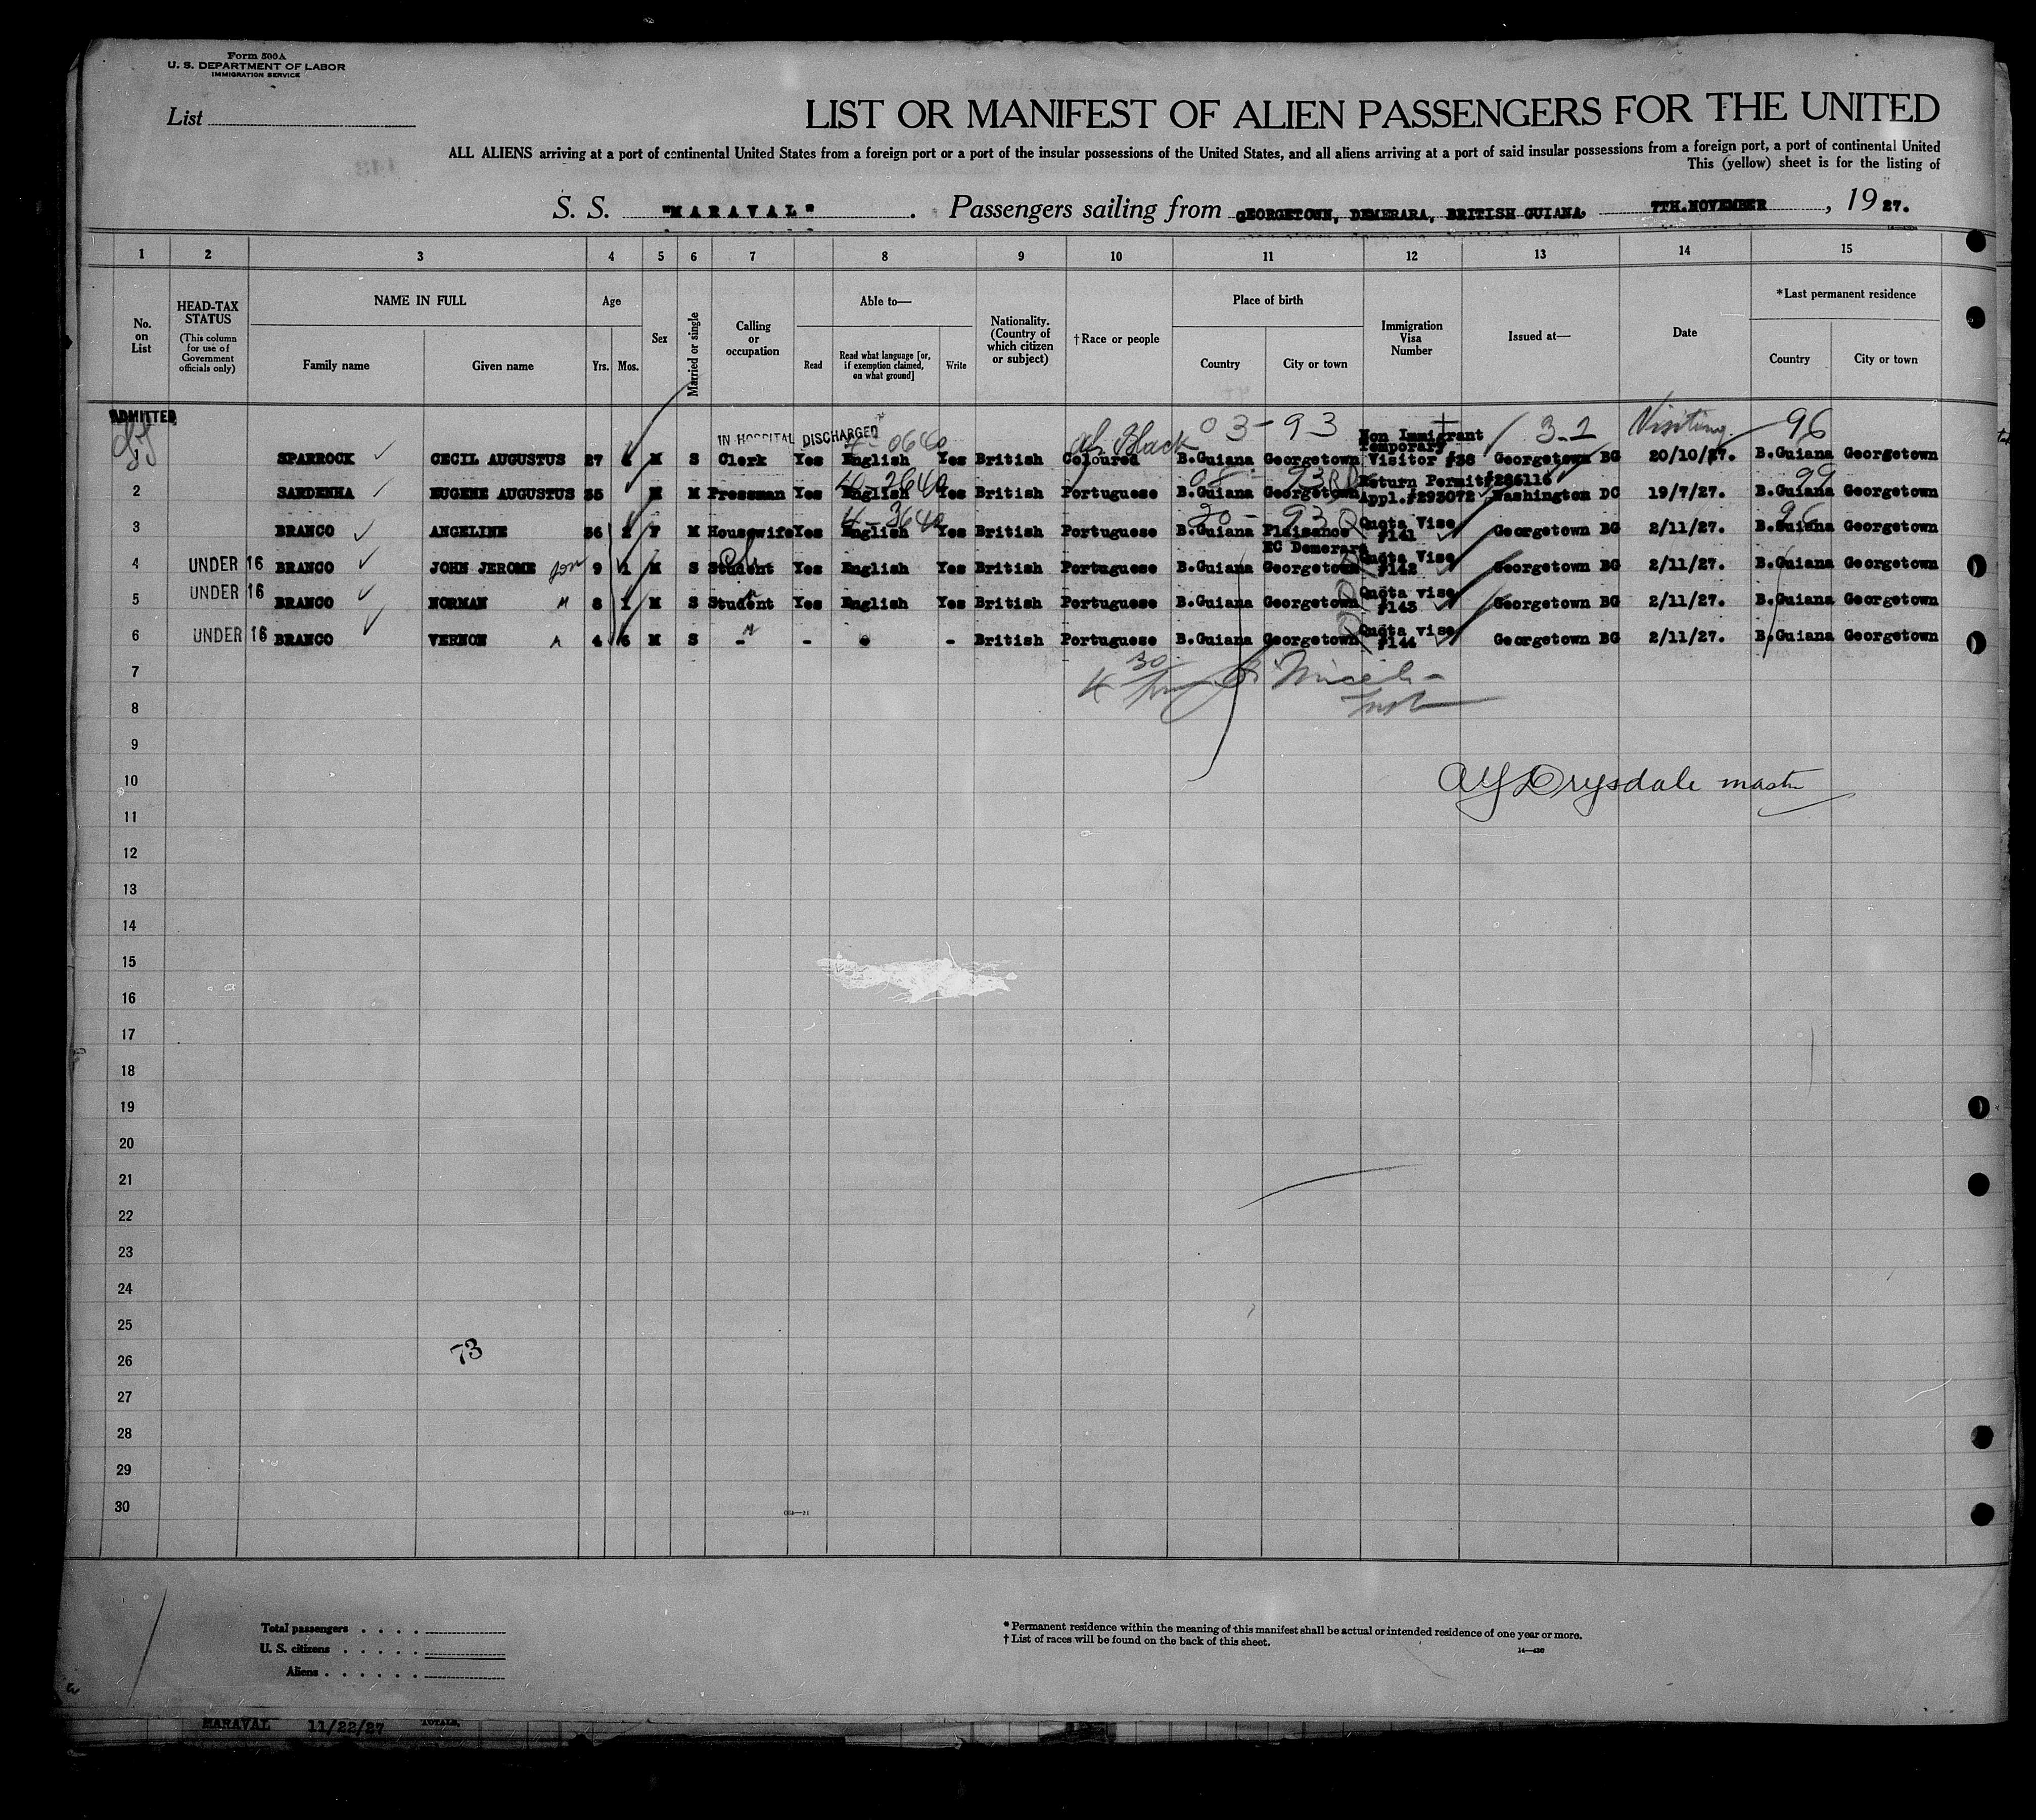 Form 500A
U. S. DEPARTMENT OF LABOR
IMMIGRATION SERVICE
List
LIST OR MANIFEST OF ALIEN PASSENGERS FOR THE UNITED
ALL ALIENS arriving at a port of continental United States from a foreign port or a port of the insular possessions of the United States, and all aliens arriving at a port of said insular possessions from a foreign port, a port of continental United
This (yellow) sheet is for the listing of
S. S. "MARAVAL". Passengers sailing from GEORGETOWN, DEMERARA, BRITISH GUIANA, 7TH.NOVEMBER, 1927.
1 2 3 4 5 6 7 8 9 10 11 12 13 14 15
No. on List
HEAD-TAX STATUS (This column for use of Government officials only)
NAME IN FULL Family name Given name
Age Yrs. Mos.
Sex
Married or single
Calling or occupation
Able to— Read Read what language [or, if exemption claimed, on what ground] Write
Nationality. (Country of which citizen or subject)
†Race or people
Place of birth Country City or town
Immigration Visa Number
Issued at—
Date
*Last permanent residence Country City or town
ADMITTED
IN HOSPITAL DISCHARGED 03-93 3-2 Visiting 96
Black
Non Immigrant
Temporary
1 SPARROCK CECIL AUGUSTUS 27 M S Clerk Yes English Yes British Coloured B.Guiana Georgetown Visitor #36 Georgetown BG 20/10/27. B.Guiana Georgetown
99
Return Permit#286116
2 SARDENHA EUGENE AUGUSTUS 35 M M Pressman Yes English Yes British Portuguese B.Guiana Georgetown Appl.#293072 Washington DC 19/7/27. B.Guiana Georgetown
3 BRANCO ANGELINE 36 F M Housewife Yes English Yes British Portuguese B.Guiana Plaisance EC Demerara Quota Vise #141 Georgetown BG 2/11/27. B.Guiana Georgetown
4 UNDER 16 BRANCO JOHN JEROME son 9 1 M S Student Yes English Yes British Portuguese B.Guiana Georgetown Quota Vise #142 Georgetown BG 2/11/27. B.Guiana Georgetown
5 UNDER 16 BRANCO NORMAN 8 1 M S Student Yes English Yes British Portuguese B.Guiana Georgetown Quota vise #143 Georgetown BG 2/11/27. B.Guiana Georgetown
6 UNDER 16 BRANCO VERNON 4 6 M S - - - British Portuguese B.Guiana Georgetown Quota vise #144 Georgetown BG 2/11/27. B.Guiana Georgetown
7
8
9
10 AY Drysdale master
11
12
13
14
15
16
17
18
19
20
21
22
23
24
25
26 73
27
28
29
30
Total passengers . . . .
U. S. citizens . . . . .
Aliens . . . . . .
* Permanent residence within the meaning of this manifest shall be actual or intended residence of one year or more.
† List of races will be found on the back of this sheet.
MARAVAL 11/22/27 TOTALS,